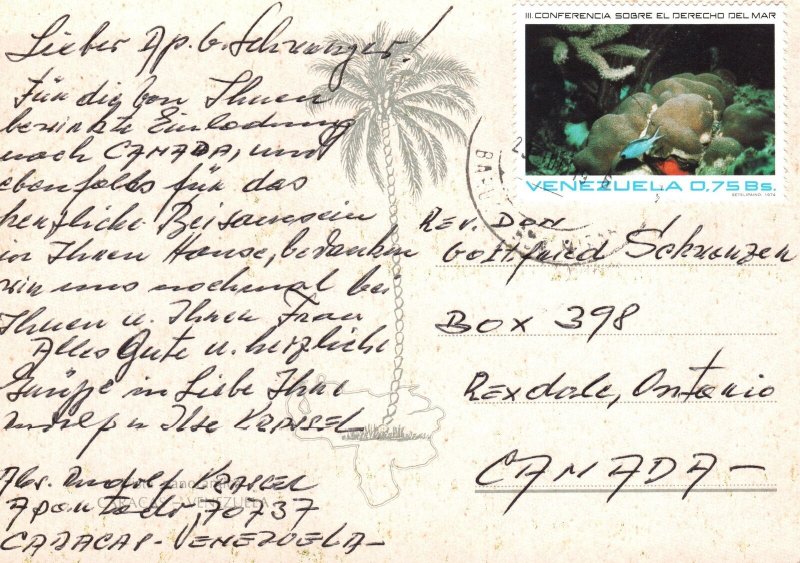 Lieber Ap. G. Schrwnzer!
Für die von Ihnen
bewirkte Einladung
nach CANADA, und
ebenfalls für das
herzliche Beisamesein
in Ihrem Hause, bedanken
wir uns nochmal bei
Ihnen u. Ihrer Frau
Alles Gute u. herzliche
Grüße in Liebe Ihre
Rudolf u Ilse KRASSEL
Abs. Rudolf KRASSEL
Apartado, 70737
CARACAS - VENEZUELA -
CARACAS - VENEZUELA
III. CONFERENCIA SOBRE EL DERECHO DEL MAR
VENEZUELA 0,75 Bs.
1974
REV. DON
Gottfried Schwenzer
BOX 398
Rexdale, Ontario
CANADA -